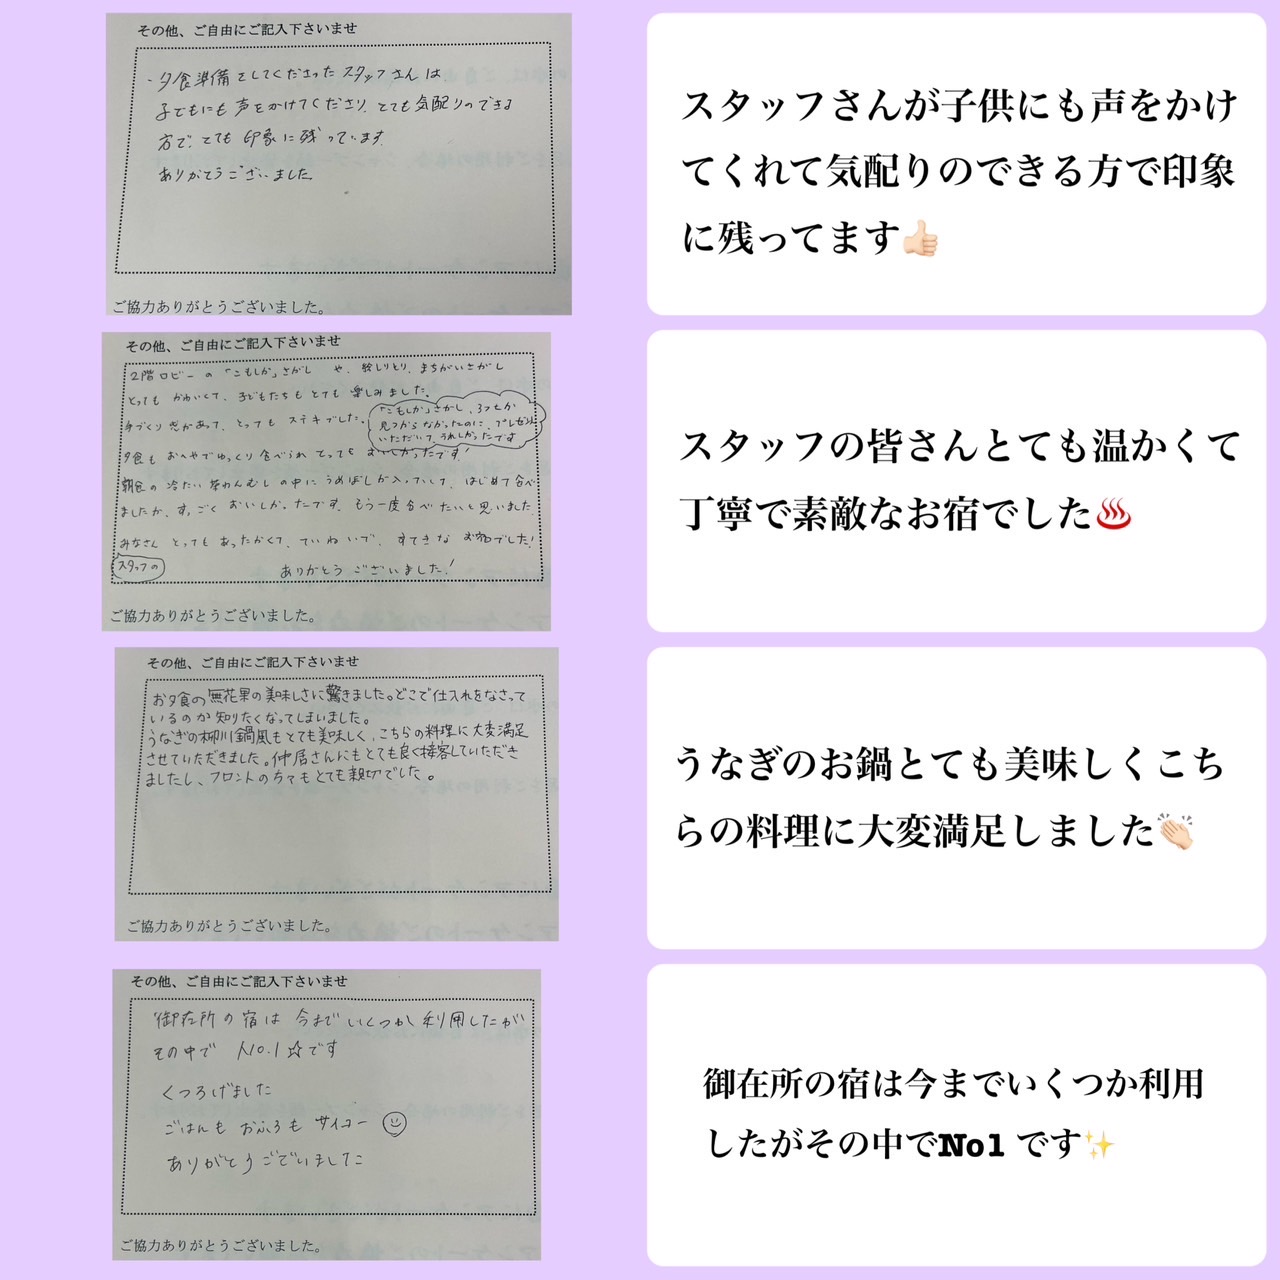 その他、ご自由にご記入下さいませ
・夕食準備をしてくださった スタッフさんは
子どもにも声をかけてくださり、とても気配りのできる
方で、とても印象に残っています。
ありがとうございました。
ご協力ありがとうございました。
スタッフさんが子供にも声をかけ
てくれて気配りのできる方で印象
に残ってます👍🏻
その他、ご自由にご記入下さいませ
2階ロビーの「こもしか」さがし や、絵しりとり、まちがいさがし
とっても かわいくて、子どもたちも とても 楽しみました。
手づくり感があって、とっても ステキでした。
「こもしか」さがし、3つしか
見つからなかったのに、プレゼント
いただいて、うれしかったです
夕食も おへやでゆっくり食べられ とっても おいしかったです!
朝食の 冷たい 茶わんむし の中に うめぼしが入っていて、はじめて食べ
ましたが、すっごく おいしかったです。もう一度食べたいと思いました。
みなさん とっても あったかくて、ていねいで、すてきな お宿でした!
スタッフの
ありがとう ございました!
ご協力ありがとうございました。
スタッフの皆さんとても温かくて
丁寧で素敵なお宿でした♨️
その他、ご自由にご記入下さいませ
お夕食の無花果の美味しさに驚きました。どこで仕入れをなさって
いるのか知りたくなってしまいました。
うなぎの柳川鍋風もとても美味しく、こちらの料理に大変満足
させていただきました。仲居さんにもとても良く接客していただき
ましたし、フロントの方もとても親切でした。
ご協力ありがとうございました。
うなぎのお鍋とても美味しくこち
らの料理に大変満足しました👏🏻
その他、ご自由にご記入下さいませ
御在所の宿は 今まで いくつか 利用したが
その中で No.1☆です
くつろげました
ごはんも おふろも サイコー ☺
ありがとうございました
ご協力ありがとうございました。
御在所の宿は今までいくつか利用
したがその中でNo1 です✨